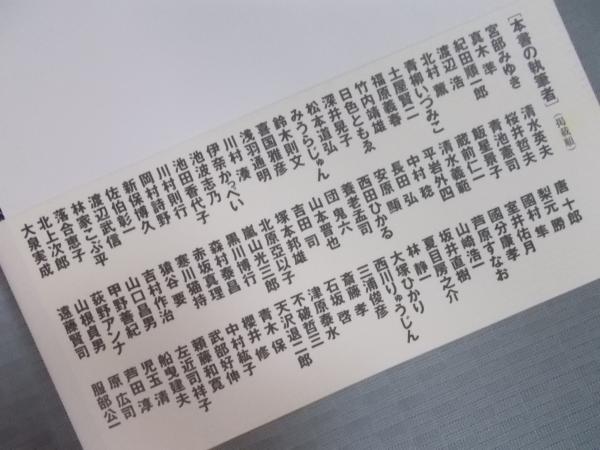 [本書の執筆者]（掲載順）
宮部みゆき
真木 準
紀田順一郎
渡辺 浩
北村 薫
青柳いつみこ
土屋賢二
福原義春
竹内靖雄
日色ともゑ
深井晃子
松本道弘
みうらじゅん
鈴木則文
喜国雅彦
浅羽通明
川村 湊
伊奈かっぺい
池波志乃
池田香代子
川村則行
岡村詩野
新保博久
佐伯彰一
渡辺武信
林家こぶ平
落合恵子
北上次郎
大泉実成
清水英夫
桜井哲夫
青池憲司
飯星景子
蔵前仁一
清水義範
平岩外四
中村 稔
長田 弘
安原 顯
西田ひかる
養老孟司
団 鬼六
山本晋也
吉田 司
塚本邦雄
北原亞以子
嵐山光三郎
黒川博行
森村泰昌
赤坂真理
寒川猫持
猿谷 要
吉村作治
山口昌男
甲野善紀
荻野アンナ
山根貞男
遠藤賢司
唐 十郎
梨元 勝
國村 隼
室井佑月
國分康孝
芦原すなお
山崎浩一
坂井直樹
夏目房之介
林 静一
大塚ひかり
西川りゅうじん
三浦俊彦
斎藤 孝
石坂 啓
津原泰水
不破哲三
天沢退二郎
青木 保
櫻井 修
中村紘子
武部好伸
頼藤和寛
左近司祥子
船曳建夫
児玉 清
芦田 淳
原 広司
服部公一